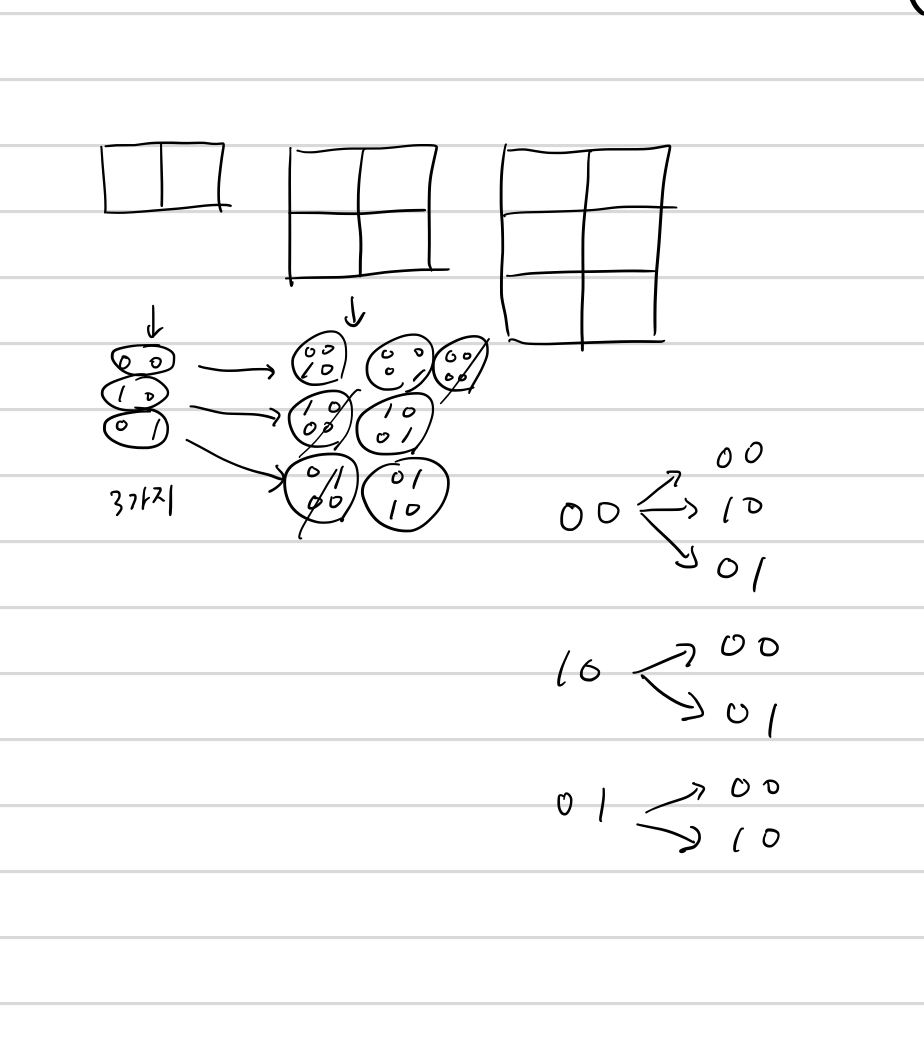 0 0
1 0
0 1
3가지
0 0
1 0
0 0
0 1
0 0
0 0
1 0
0 0
1 0
0 1
0 1
0 0
0 1
1 0
0 0 → 0 0
→ 1 0
→ 0 1
1 0 → 0 0
→ 0 1
0 1 → 0 0
→ 1 0